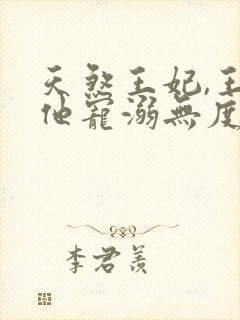 天煞王妃,王
他寵溺無度
李君羨